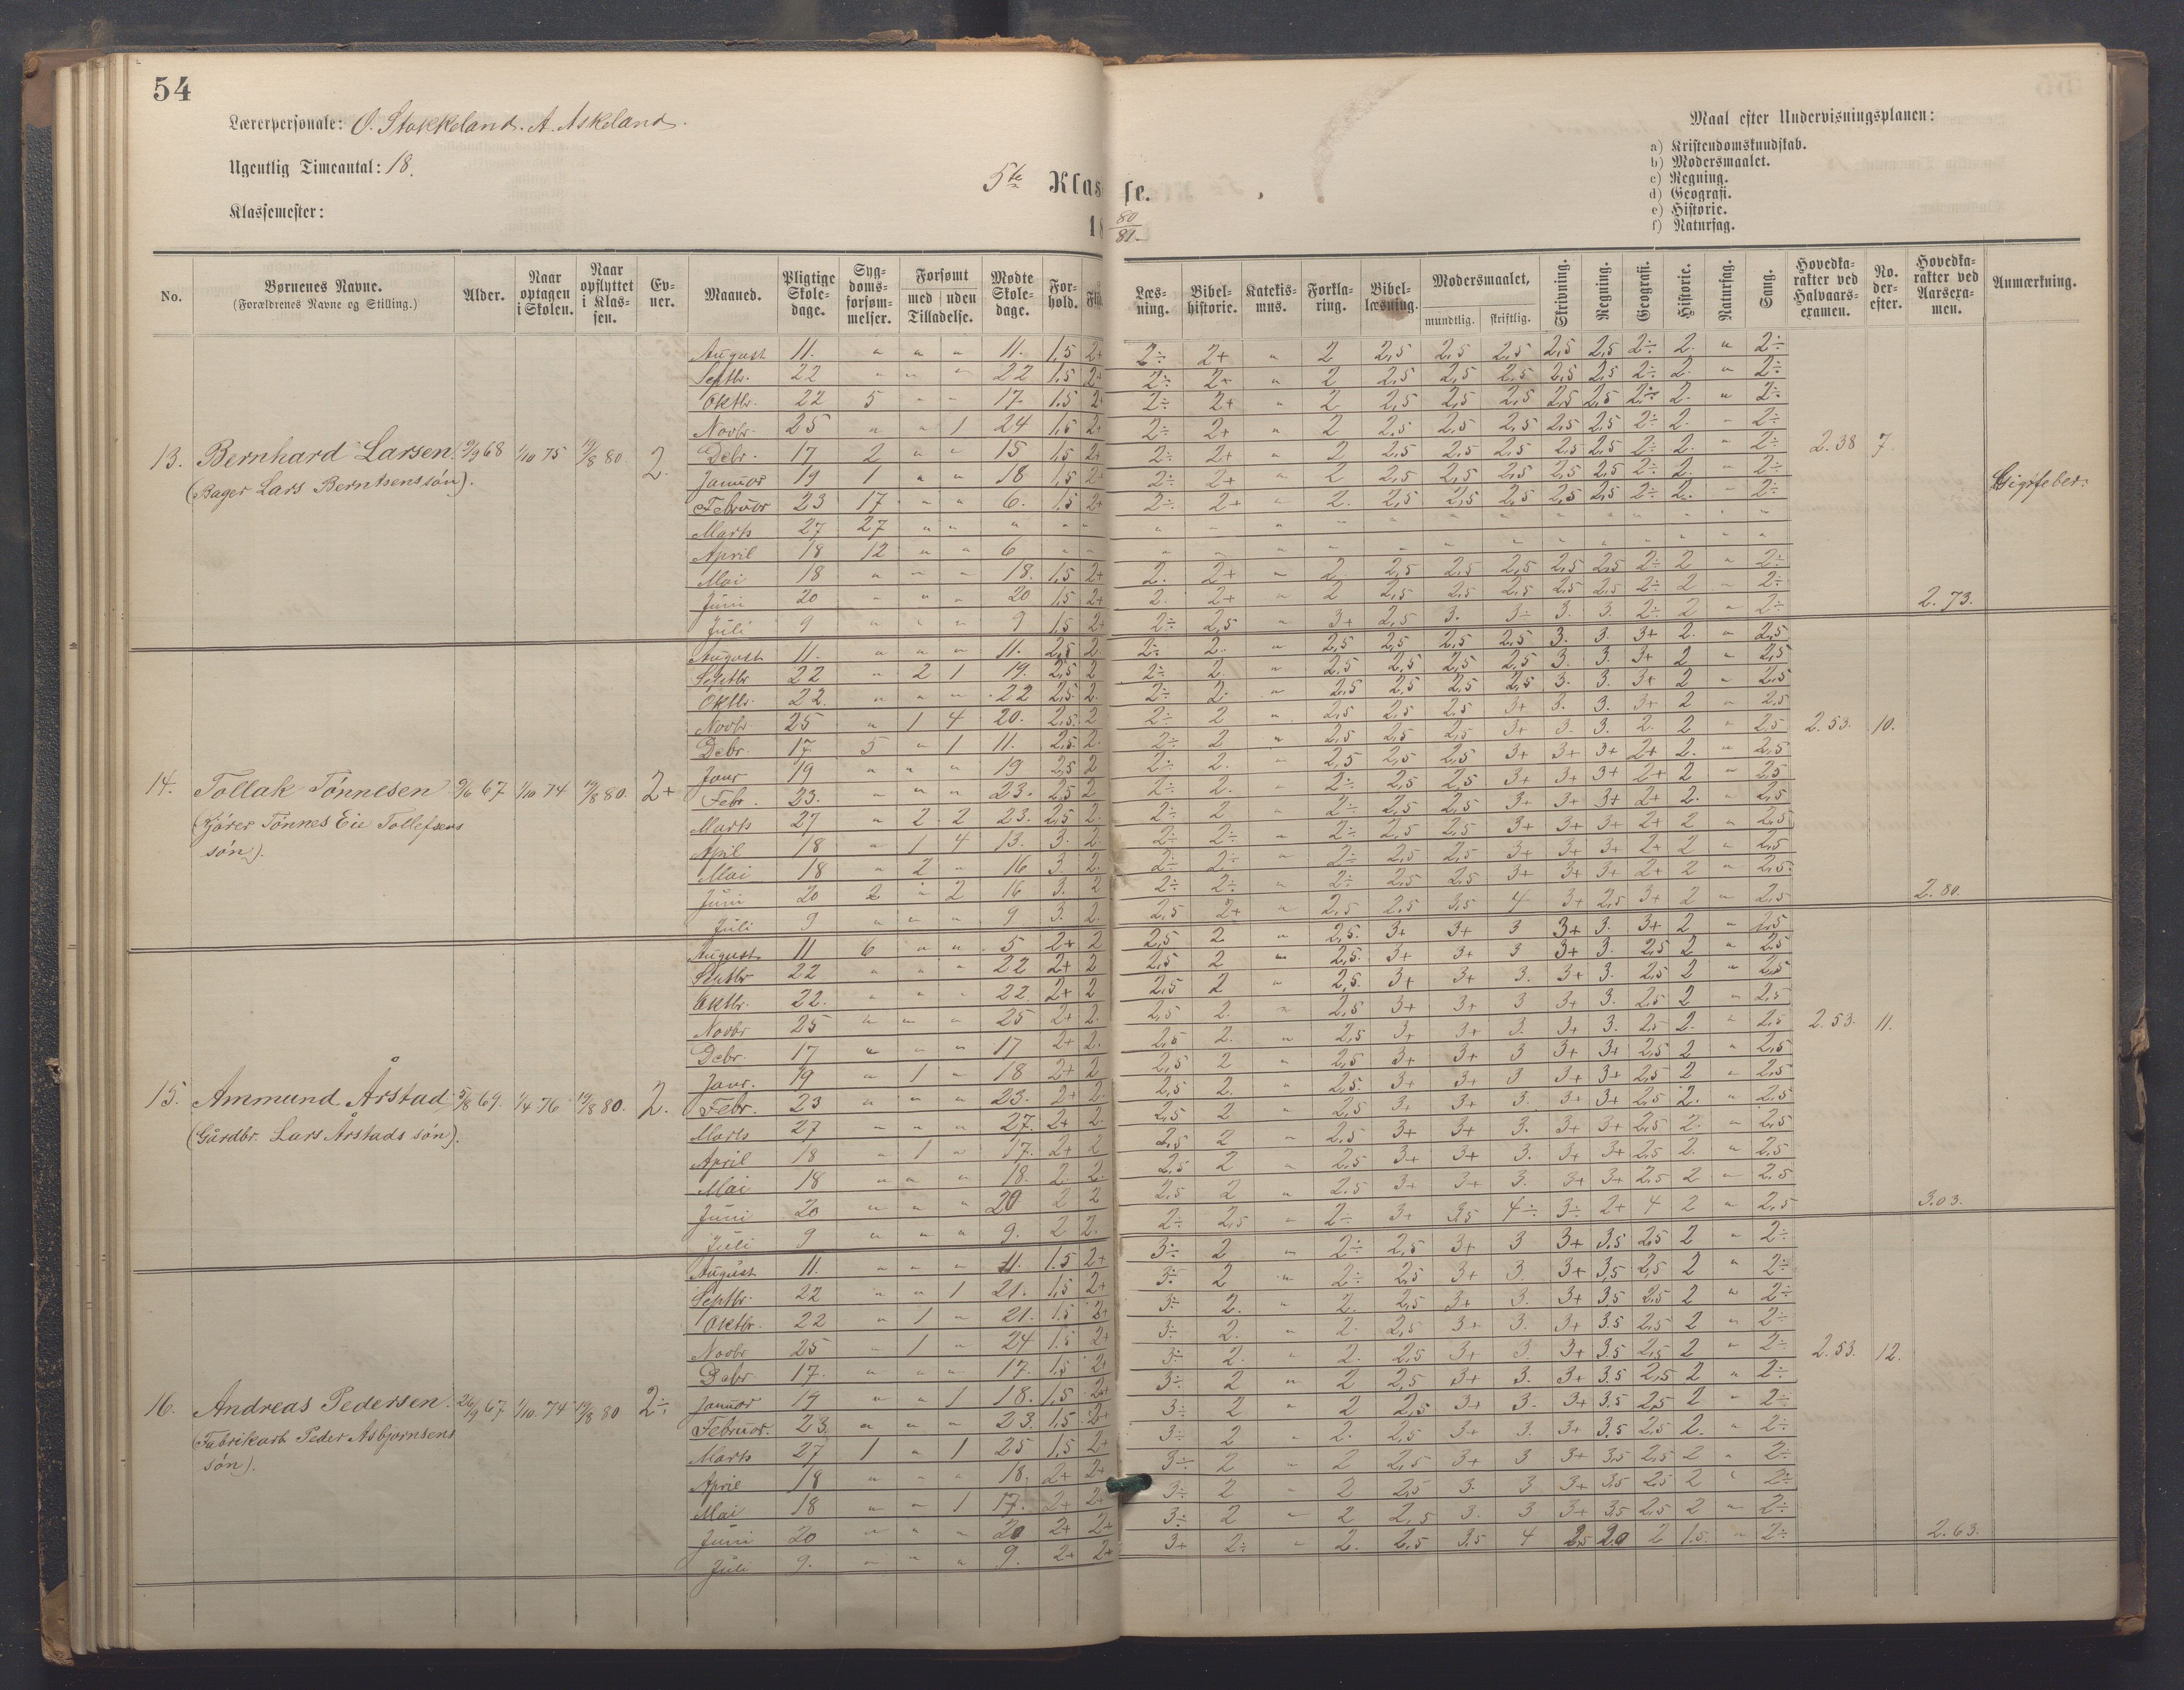 54
Lærerpersonale: O. Stokkeland. A. Askeland.
Ugentlig Timeantal: 18.
Klassemester:
5te Klasse.
1880/81.
Maal efter Undervisningsplanen:
a) Kristendomskundskab.
b) Modersmaalet.
c) Regning.
d) Geografi.
e) Historie.
f) Naturfag.
No. Børnenes Navne. (Forældrenes Navne og Stilling.) Alder. Naar optagen i Skolen. Naar opflyttet i Klassen. Evner. Maaned. Pligtige Skoledage. Sygdomsforsømmelser. Forsømt med uden Tilladelse. Mødte Skoledage. Forhold. Læsning. Bibelhistorie. Katekismus. Forklaring. Bibellæsning. Modersmaalet, mundtlig. skriftlig. Skrivning. Regning. Geografi. Historie. Naturfag. Sang. Hovedkarakter ved Halvaarsexamen. No. derefter. Hovedkarakter ved Aarsexamen. Anmærkning.
August 11. " " " 11. 1,5 2+ 2÷ 2+ " 2 2,5 2,5 2,5 2,5 2,5 2÷ 2. " 2÷
Septbr. 22 " " " 22 1,5 2+ 2÷ 2+ " 2 2,5 2,5 2,5 2,5 2,5 2÷ 2. " 2÷
Oktbr. 22 5 " " 17. 1,5 2+ 2÷ 2+ " 2 2,5 2,5 2,5 2,5 2,5 2÷ 2. " 2÷
Novbr. 25 " " 1 24 1,5 2+ 2÷ 2+ " 2 2,5 2,5 2,5 2,5 2,5 2÷ 2. " 2÷
13. Bernhard Larsen. 1/10 75 19/8 80 2. Debr. 17 2 " " 15 1,5 2+ 2÷ 2+ " 2 2,5 2,5 2,5 2,5 2,5 2÷ 2. " 2÷ 2.38 7.
(Bager Lars Berntsens søn). Januar 19 1 " " 18 1,5 2+ 2÷ 2+ " 2 2,5 2,5 2,5 2,5 2,5 2÷ 2. " 2÷
Februar 23 17 " " 6. 1,5 2+ 2÷ 2+ " 2. 2,5 2,5 2,5 2,5 2,5 2÷ 2. " 2÷ Gigtfeber.
Marts 27 27 " " " " " " " " " " " " " " " " " "
April 18 12 " " 6 " " " " " " " " " " " " " " "
Mai 18 " " " 18. 1,5 2+ 2. 2+ " 2 2,5 2,5 2,5 2,5 2,5 2÷ 2 " 2÷
Juni 20 " " " 20 1,5 2+ 2. 2+ " 2 2,5 2,5 2,5 2,5 2,5 2÷ 2 " 2÷
Juli 9 " " " 9 1,5 2+ 2÷ 2,5 " 3+ 2,5 3. 3÷ 3. 3. 2÷ 2 " 2÷ 2.73.
August 11. " " " 11. 2,5 2. 2÷ 2. " 2,5 2,5 2,5 2,5 3. 3. 3+ 2. " 2,5
Septbr 22 " 2 1 19. 2,5 2 2÷ 2. " 2,5 2,5 2,5 2,5 3. 3. 3+ 2 " 2,5
Oktbr. 22. " " " 22 2,5 2. 2÷ 2. " 2,5 2,5 2,5 2,5 3. 3. 3+ 2 " 2,5
Novbr 25 " 1 4 20. 2,5. 2 2÷ 2 " 2,5 2,5 2,5 3+ 3. 3. 3+ 2 " 2,5
Debr. 17. 5 " 1 11. 2,5 2. 2÷ 2 " 2,5 2,5 2,5 3+ 3. 3. 2. 2 " 2,5 2.53. 10.
Janr 19 " " " 19 2,5 2 2÷ 2. " 2,5 2,5 2,5 3+ 3+ 3+ 2+ 2. " 2,5
14. Tollak Tønnesen 1/10 74 19/8 80. 2+ Febr. 23. " " " 23. 2,5 2 2÷ 2. " 2÷ 2,5 2,5 3+ 3+ 3+ 2+ 2 " 2,5
(Kjører Tønnes Eie Tollefsens Marts 27 " 2 2 23. 2,5 2. 2÷ 2 " 2÷ 2,5 2,5 3+ 3+ 3+ 2+ 2. " 2,5
søn). April 18 " 1 4 13. 3. 2. 2÷ 2÷ " 2÷ 2,5 2,5 3+ 3+ 3+ 2+ 2 " 2,5
Mai 18 " 2 " 16 3. 2. 2÷ 2÷ " 2÷ 2,5 2,5 3+ 3+ 3+ 2+ 2 " 2,5
Juni 20 2 " 2 16 3. 2 2÷ 2÷ " 2÷ 2,5 2,5 3+ 3+ 3+ 2+ 2 " 2,5.
Juli 9 " " " 9 3. 2. 2,5 2+ " 2,5 2,5 3,5 4 3+ 2,5 3+ 2 " 2,5 2.80.
August 11 6 " " 5 2+ 2 2,5 2 " 2,5. 3+ 3+ 3 3+ 3. 3+ 2 " 2,5
Septbr 22 " " " 22 2+ 2 2,5 2 " 2,5. 3+ 3+ 3 3+ 3. 2,5 2 " 2,5
Oktbr. 22. " " " 22 2+ 2 2,5 2 " 2,5. 3+ 3+ 3. 3+ 3. 2,5 2 " 2,5
Novbr 25 " " " 25 2+ 2. 2,5 2. " 2,5 3+ 3+ 3 3+ 3. 2,5 2 " 2,5
Debr. 17 " " " 17 2+ 2. 2,5 2. " 2,5 3+ 3+ 3. 3+ 3. 2,5 2. " 2,5 2.53. 11.
Janr. 19 " 1 " 18 2+ 2 2,5 2 " 2,5 3+ 3+ 3 3+ 3+ 2,5 2 " 2,5
15. Ammund Årstad 5/8 69. 1/4 76 19/8 80. 2. Febr. 23 " " " 23. 2+ 2. 2,5 2. " 2,5. 3+ 3+ 3 3+ 3+ 2,5 2 " 2,5
(Gårdbr. Lars Årstads søn). Marts 27 " " " 27. 2+ 2. 2,5 2 " 2,5 3+ 3+ 3. 3+ 3+ 2,5 2. " 2,5
April 18 " 1 " 17. 2+ 2 2,5 2 " 2,5 3+ 3+ 3. 3+ 3+ 2,5 2. " 2,5
Mai 18 " " " 18. 2. 2. 2,5 2 " 2,5 3+ 3+ 3. 3+ 3+ 2,5 2. " 2,5
Juni 20 " " " 20 2 2 2,5 2 " 2,5 3+ 3+ 3. 3+ 3+ 2,5 2 " 2,5
Juli 9 " " " 9. 2 2. 2÷ 2,5 " 2÷ 3+ 3,5 4÷ 3÷ 2+ 4 2 " 2,5 3.03.
August 11. " " " 11. 1.5 2+ 3÷ 2 " 2÷ 2,5 3+ 3 3+ 3,5 2,5 2 " 2÷
Septbr. 22 " " 1 21. 1,5 2+ 3÷ 2 " 2÷ 2,5 3+ 3. 3+ 3,5 2,5 2 " 2÷
Oktbr. 22 " 1 " 21. 1.5 2+ 3÷ 2. " 2. 2,5 3+ 3. 3+ 3.5 2,5 2 " 2÷
Novbr 25 " 1 " 24 1.5 2+ 3÷ 2. " 2. 2,5 3+ 3. 3+ 3.5 2,5 2 " 2÷
Debr. 17. " " " 17. 1,5 2+ 3÷ 2. " 2. 2,5 3+ 3 3+ 3.5 2,5 2 " 2÷ 2.53. 12.
16. Andreas Pedersen. 26/9 67 1/10 74 19/8 80 2÷ Januar 19 " " 1 18. 1,5 2+ 3÷ 2 " 2 2,5 3+ 3. 3+ 3.5 2,5 2 " 2÷
Februar. 23. " " " 23. 1.5 2+ 3÷ 2 " 2 2,5 3+ 3. 3+ 3.5 2,5 2 " 2÷
(Fabrikarb. Peder Asbjørnsens Marts 27 1 " 1 25 1,5 2+ 3÷ 2 " 2. 2,5 3+ 3. 3+ 3,5 2,5 2. " 2÷
søn). April 18 " " " 18. 2+ 2+ 3÷ 2 " 2 2,5 3+ 3 3+ 3,5 2,5 2 " 2÷
Mai 18 " " 1 17. 2+ 2+ 3÷ 2 " 2 2,5 3. 3 3+ 3,5 2,5 2 " 2÷
Juni 20 " " " 20 2+ 2+ 3÷ 2 " 2 2,5 3. 3 3+ 3,5 2,5 2 " 2÷
Juli 9. " " " 9. 2+ 2+ 3+ 2÷ " 2. 2,5 3,5 4 2,5 2 1.5. " 2÷ 2.63.